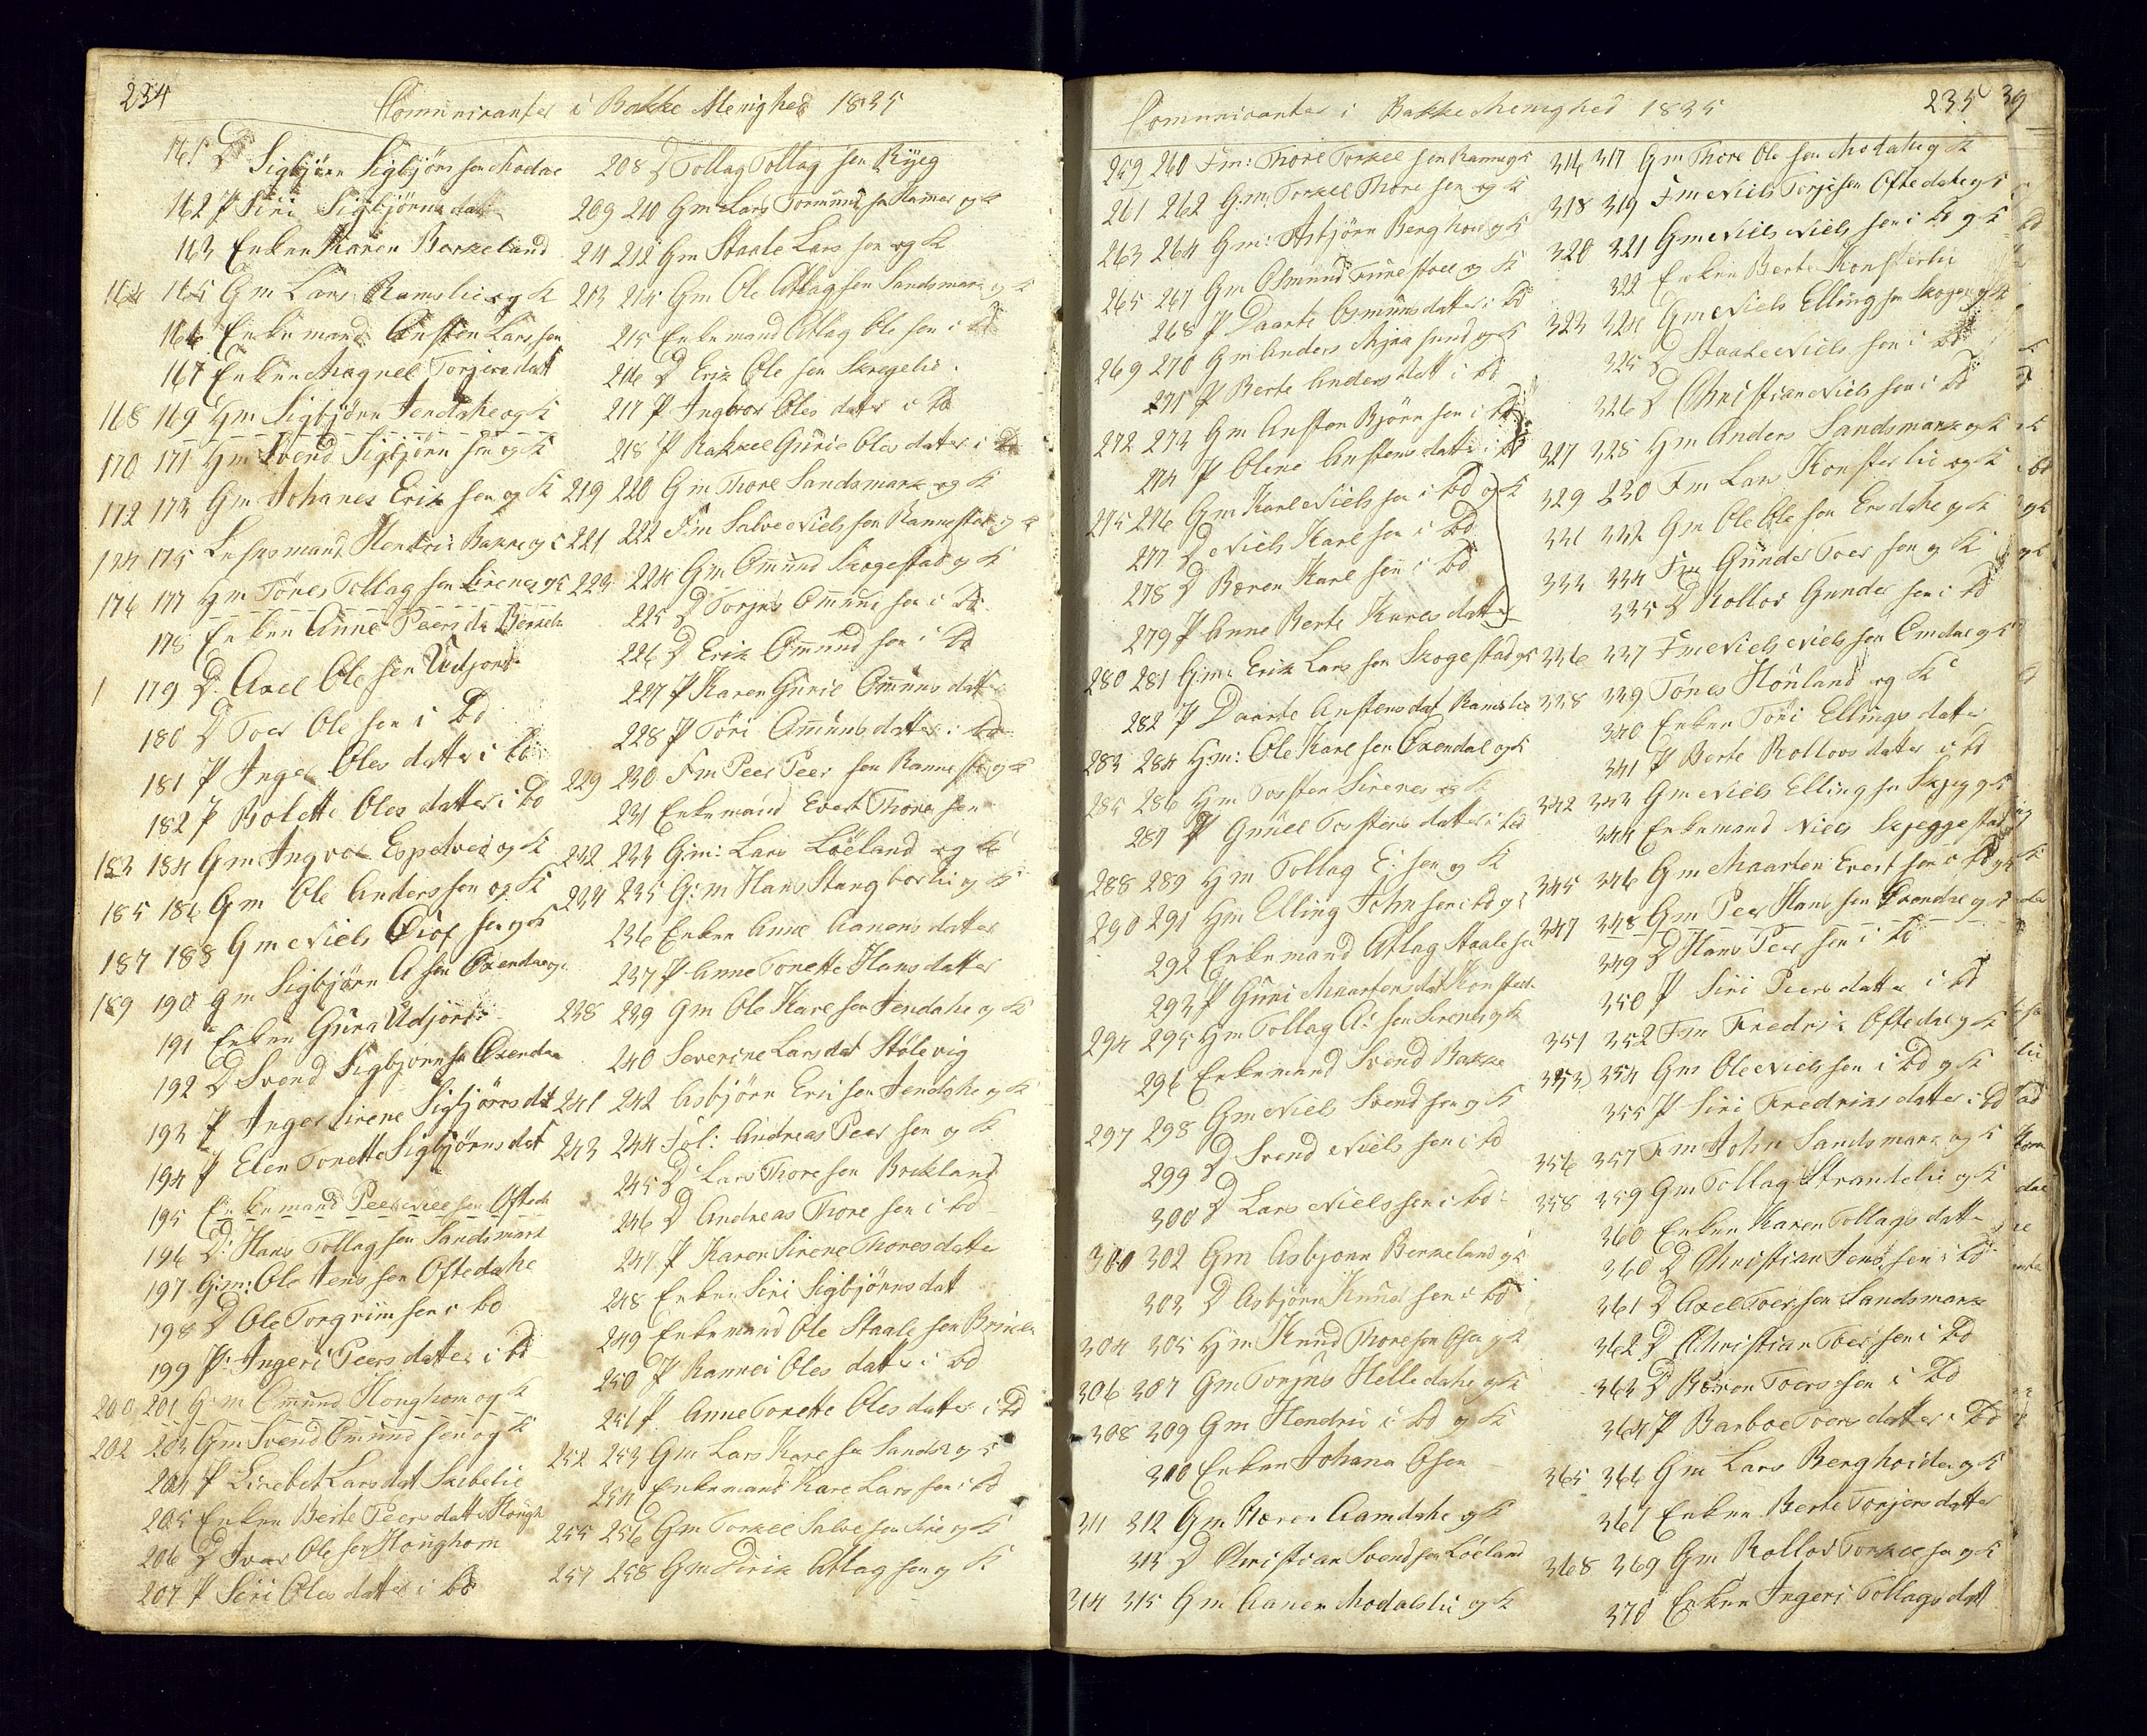 234
Communicanter i Bakke Menighed 1835
161 D Sigbjörn Sigbjörn sen Modal
162 P Siri Sigbjörns datt
163 Enken Karen Berkeland
164 165 Gm Lars Ramslie og K
166 Enkemand Ansten Lars sen
167 Enken Magnel Torgers datt
168 169 Hm Sigbjörn Jendahe og K
170 171 Hm Svend Sigbjörn sen og K
172 173 Gm Johanes Erik sen og K
174 175 Lehnsmand Hendric Bakke og K
176 177 Hm Tönes Tollag sen Sirenes og K
178 Enken Anne Peers da
179 D. Axel Ole sen Udjord
180 D Toer Ole sen i bd
181 P Inger Oles datter i bd
182 P Bolette Oles datter i bd
183 184 Gm Ingvol Espetved og K
185 186 Gm Ole Anders sen og K
187 188 Gm Niels sen og K
189 190 Gm Sigbjörn A sen Oxendal og
191 Enken Guri Udjord
192 D Svend Sigbjörn sen Oxendal
193 P Inger Sirene Sigbjörns dat
194 P Elen Tonette Sigbjörns dat
195 Enkemand Peer Niel sen Ofteda
196 D: Hans Tollag sen Sandsmark
197 G:m: Ole Jens sen Oftedahe
198 D Ole Torgrim sen i bd
199 P: Ingeri Peers datter i bd
200 201 G:m Omund Honghom og K
202 203 Gm Svend Omund sen og K
204 P Lisebet Lars dat Skibelie
205 Enken Berte Peers datt Hough
206 D Ivar Ole sen Honghom
207 P Siri Oles datter i bd
208 D Tollag Tollag sen Rÿeg
209 210 Gm Lars Tormund sen Hamer og K
211 212 Gm Staale Lars sen og K
213 214 Gm Ole Atlag sen Sandsmark og K
215 Enkemand Atlag Ole sen i bd
216 D Erik Ole sen Skregelie
217 P. Ingbor Oles dater i bd
218 P Rakael Gurie Oles dater i bd
219 220 Gm Thore Sandsmark og K
221 222 Fm Salve Niels sen Rannestad og K
223 224 Gm Omund Skogestad og K
225 D Torjus Omund sen i bd
226 D Erik Omund sen i bd
227 P Karen Gurie Omunds datt
228 P Töri Omunds datter i bd
229 230 Fm Peer Peer sen Rannest og K
231 Enkemand Evert Thore sen
232 233 G:m: Lars Löeland og K
234 235 G:m Hans Stangborlie og K
236 Enken Anne Aanens datter
237 P Anne Tonette Hans datter
238 239 Gm Ole Karl sen Jendahe og K
240 Severine Lars dat Stölevig
241 242 Asbjörn Eric sen Jendahe og K
243 244 Sol: Andreas Peer sen og K
245 D Lars Thore sen Birkeland
246 D Andreas Thore sen i bd
247 P Karen Sirene Thores datte
248 Enken Siri Sigbjörns datt
249 Enkemand Ole Staale sen
250 P Rannei Oles datter i bd
251 P Anne Tonette Oles datter i bd
252 253 Gm Lars Karl sen Sands og K
254 Enkemand Karl Lars sen i bd
255 256 Gm Torkel Salve sen Sire og K
257 258 Gm Dirik Atlag sen og K
235
39
Communicanter i Bakke Menighed 1835
259 260 Fm: Thore Torkel sen Ranne og K
261 262 G:m: Torkel Thore sen og K
263 264 Gm: Asbjörn Berghom og K
265 267 Gm Osmund Tunestoel og K
268 P Daarte Osmunds datter i bd
269 270 Gm Anders Mjaasund og K
271 P Berte Anders datt i bd
272 273 Gm Ansten Bjørn sen i bd
274 P Olene Anstens datter i bd
275 276 Gm Karl Niels sen i bd og K
277 D Niels Karl sen i bd
278 D Bæren Karl sen i bd
279 P Anne Berte Karls datter
280 281 G:m: Erik Lars sen Skogestad og K
282 P Daarte Anstens dat Ramslie
283 284 H:m: Ole Karl sen Oxendal og K
285 286 Hm Torsten Sirenes og K
287 P Gunel Torstens datter i bd
288 289 Hm Tollag E: sen og K
290 291 Hm Elling John sen i bd og K
292 Enkemand Atlag Staale sen
293 P Guri Maartens dat Konsteli
294 295 Hm Tollag A: sen Sirenes og K
296 Enkemand Svend Bakke
297 298 Gm Niels Svend sen og K
299 D Svend Niels sen i bd
300 D Lars Niels sen i bd
300 302 Gm Asbjorn Berkeland og K
303 D Asbjörn Knud sen i bd
304 305 Hm Knud Thore sen Osen og K
306 307 Gm Torjus Helledahe og K
308 309 Gm Hendric i bd og K
310 Enken Johana Osen
311 312 Gm Bæren Aamdahe og K
313 D Christian Svend sen Löeland
314 315 Gm Aanen Modalslie og K
316 317 Gm Thore Ole sen Modahe og K
318 319 Fm Niels Torgesen Oftedahe og K
320 321 Gm Niels Niels sen i bd og K
322 Enken Berte Konsterlie
323 324 Gm Niels Elling sen Skogen og K
325 D Staale Niels sen i bd
326 D Christian Niels sen i bd
327 328 Hm Anders Sandsmark og K
329 230 Fm Lars Konsterlie og K
331 332 Gm Ole Ole sen Ersdahe og K
333 334 Fm Gunder Toer sen og K
335 D Rollov Gunder sen i bd
336 337 Fm Niels Niels sen Omdal og K
338 339 Tönes Höuland og K
340 Enken Töri Ellings datter
341 P Berte Rollovs datter i bd
342 343 Gm Niels Elling sen Skjeg og K
344 Enkemand Niels Skjeggestad
345 346 Gm Maarten Evert sen i bd og K
347 348 Gm Peer Hans sen Oxendal og K
349 D Hans Peer sen i bd
350 P Siri Peers datter i bd
351 352 Fm Fredrik Oftedal og K
353 354 Gm Ole Niels sen i bd og K
355 P Siri Fredriks datter i bd
356 357 Fm John Sandsmark og K
358 359 Gm Tollag Strandelie og K
360 Enken Karen Tollags datte
360 D Christian Jens sen i bd
361 D Axel Toer sen Sandsmark
362 D Christian Toer sen i bd
363 D Bæren Toers sen i bd
364 P Barboe Toers datter i bd
365 366 Gm Lars Berghoiden og K
367 Enken Berte Torjers datter
368 369 Gm Rollov Torkel sen og K
370 Enken Ingeri Tollags datt